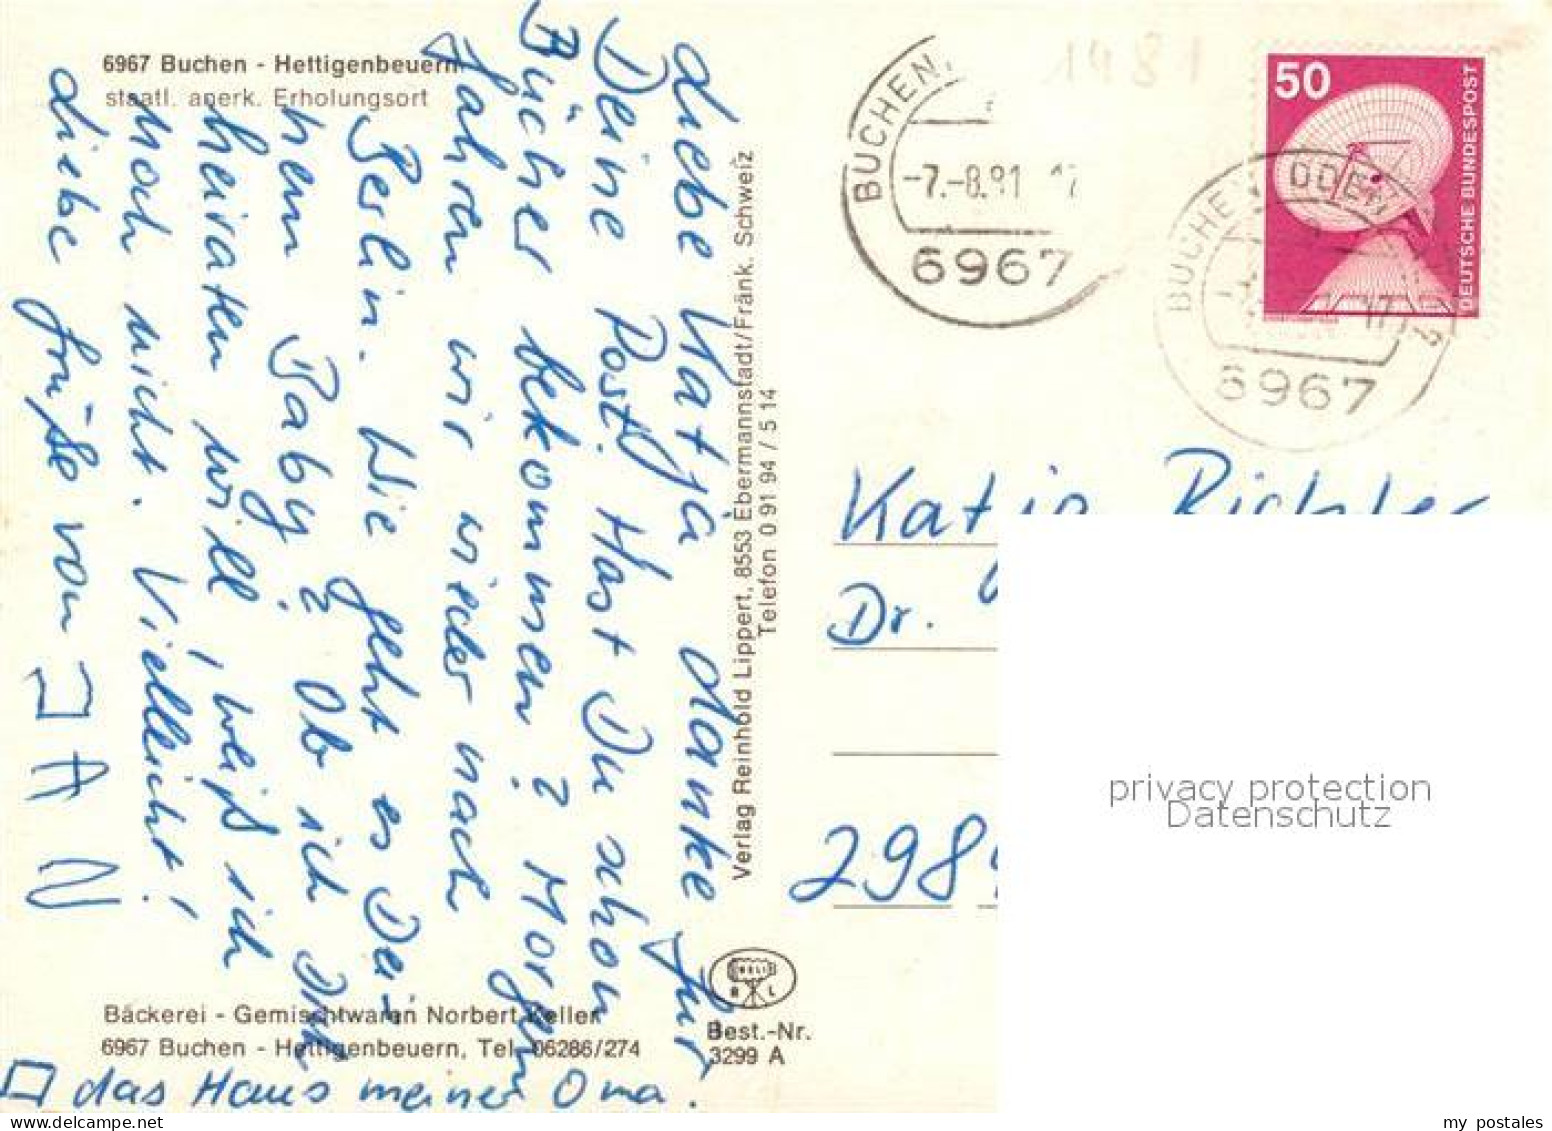 6967 Buchen - Hettigenbeuern
staatl. anerk. Erholungsort
Liebe Katja danke für
Deine Post. Hast Du schon
Bücher bekommen? Morgen
fahren wir wieder nach
Berlin. Wie geht es Dei-
nem Baby? Ob ich Dich
heiraten will, weiß ich
noch nicht. Vielleicht!
Liebe Grüße von JAN
das Haus meiner Oma.
Bäckerei - Gemischtwaren Norbert Keller
6967 Buchen - Hettigenbeuern, Tel. 06286/274
Verlag Reinhold Lippert, 8553 Ebermannstadt/Fränk. Schweiz
Telefon 0 91 94 / 5 14
Best.-Nr.
3299 A
1481
50
DEUTSCHE BUNDESPOST
BUCHEN,
-7.-8.81 17
6967
BUCHEN ODENW
17
6967
Katja Richter
Dr.
298
privacy protection
Datenschutz
my postales